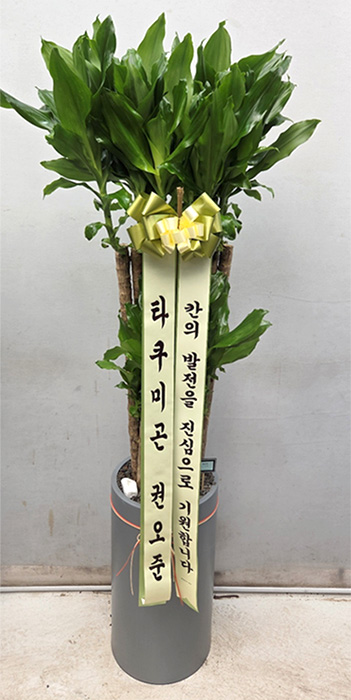 타쿠미곤 권오준
칸의 발전을 진심으로 기원합니다